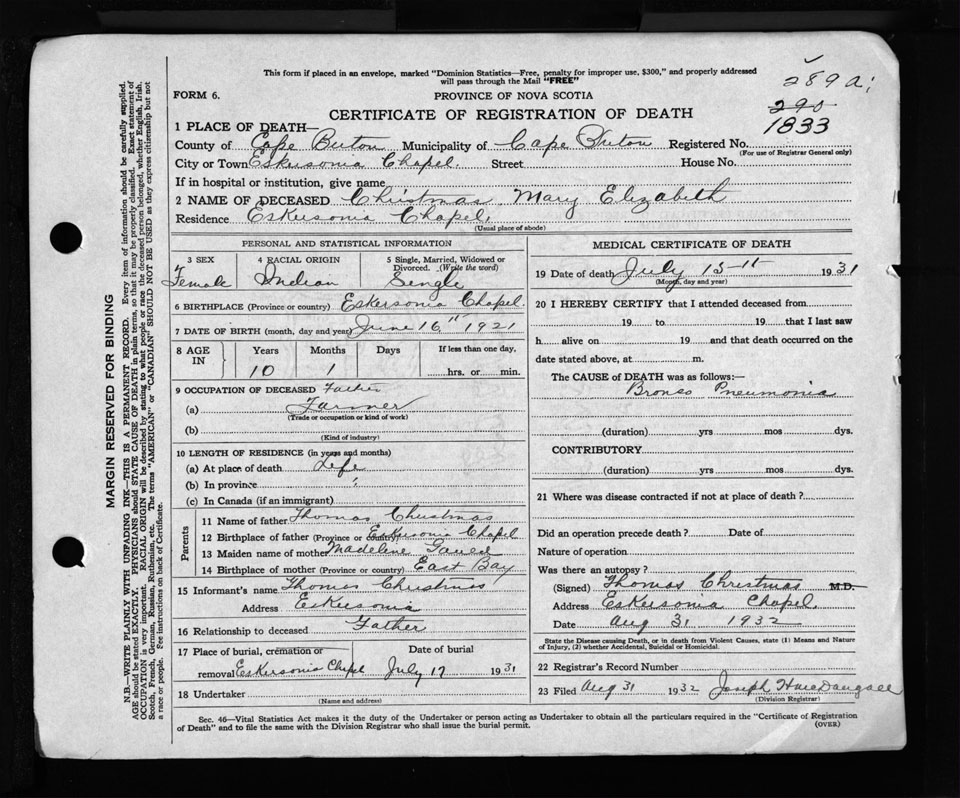 This form if placed in an envelope, marked "Dominion Statistics—Free, penalty for improper use, $300," and properly addressed
will pass through the Mail "FREE"
289 a;
FORM 6.
PROVINCE OF NOVA SCOTIA
290
CERTIFICATE OF REGISTRATION OF DEATH
1833
1 PLACE OF DEATH—
County of Cape Breton Municipality of Cape Breton Registered No.
(For use of Registrar General only)
City or Town Eskersonia Chapel. Street House No.
If in hospital or institution, give name
2 NAME OF DECEASED Christmas Mary Elizabeth
Residence Eskersonia Chapel.
(Usual place of abode)
PERSONAL AND STATISTICAL INFORMATION
3 SEX 4 RACIAL ORIGIN 5 Single, Married, Widowed or Divorced. (Write the word)
Female Indian Single
6 BIRTHPLACE (Province or country) Eskersonia Chapel.
7 DATE OF BIRTH (month, day and year) June 16th 1921
8 AGE IN Years Months Days If less than one day,
10 1 hrs. or min.
9 OCCUPATION OF DECEASED Father
(a) Farmer
(Trade or occupation or kind of work)
(b)
(Kind of industry)
10 LENGTH OF RESIDENCE (in years and months)
(a) At place of death Life
(b) In province
(c) In Canada (if an immigrant)
Parents
11 Name of father Thomas Christmas
12 Birthplace of father (Province or country) Eskersonia Chapel
13 Maiden name of mother Madeline
14 Birthplace of mother (Province or country) East Bay
15 Informant's name Thomas Christmas
Address Eskersonia
16 Relationship to deceased Father
17 Place of burial, cremation or removal Eskersonia Chapel
Date of burial July 17 1931
18 Undertaker
(Name and address)
MEDICAL CERTIFICATE OF DEATH
19 Date of death July 15th 1931
(Month, day and year)
20 I HEREBY CERTIFY that I attended deceased from
19 to 19 that I last saw
h alive on 19 and that death occurred on the
date stated above, at m.
The CAUSE of DEATH was as follows:—
Bronco Pneumonia
(duration) yrs mos dys.
CONTRIBUTORY
(duration) yrs mos dys.
21 Where was disease contracted if not at place of death?
Did an operation precede death? Date of
Nature of operation
Was there an autopsy?
(Signed) Thomas Christmas M.D.
Address Eskersonia Chapel.
Date Aug 31 1932
State the Disease causing Death, or in death from Violent Causes, state (1) Means and Nature
of Injury, (2) whether Accidental, Suicidal or Homicidal.
22 Registrar's Record Number
23 Filed Aug 31 1932 Joseph H MacDougall
(Division Registrar)
Sec. 46—Vital Statistics Act makes it the duty of the Undertaker or person acting as Undertaker to obtain all the particulars required in the "Certificate of Registration
of Death" and to file the same with the Division Registrar who shall issue the burial permit.
(OVER)
MARGIN RESERVED FOR BINDING
N.B.—WRITE PLAINLY WITH UNFADING INK—THIS IS A PERMANENT RECORD. Every item of information should be carefully supplied.
AGE should be stated EXACTLY. PHYSICIANS should STATE CAUSE OF DEATH in plain terms, so that it may be properly classified. Exact statement of
OCCUPATION is very important. RACIAL ORIGIN will be described by stating to what people or race the deceased person belonged, whether English, Irish,
Scotch, French, German, Russian, Ruthenian, etc. The terms "AMERICAN" or "CANADIAN" SHOULD NOT BE USED as they express citizenship but not
a race or people. See instructions on back of Certificate.